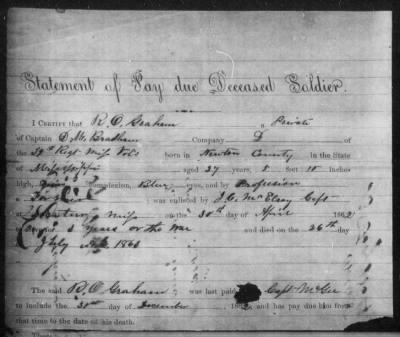 Statement of Pay due Deceased Soldier.
I CERTIFY that R. C. Graham a Private
of Captain D. M. Bradham Company D
the Regt Miss Vols born in Newton County in the State
of Mississippi aged 27 years, 5 feet 10 inches
high, complexion, Blue eyes, and by Profession
was enlisted by J. C. McElroy Capt
at Miss on the 30th day of April 1862
3 years or the War and died on the 26th day
July
The said R. C. Graham was last paid Capt McGee
to include the 31st day of December 186 and has pay due from
that time to the date of his death.